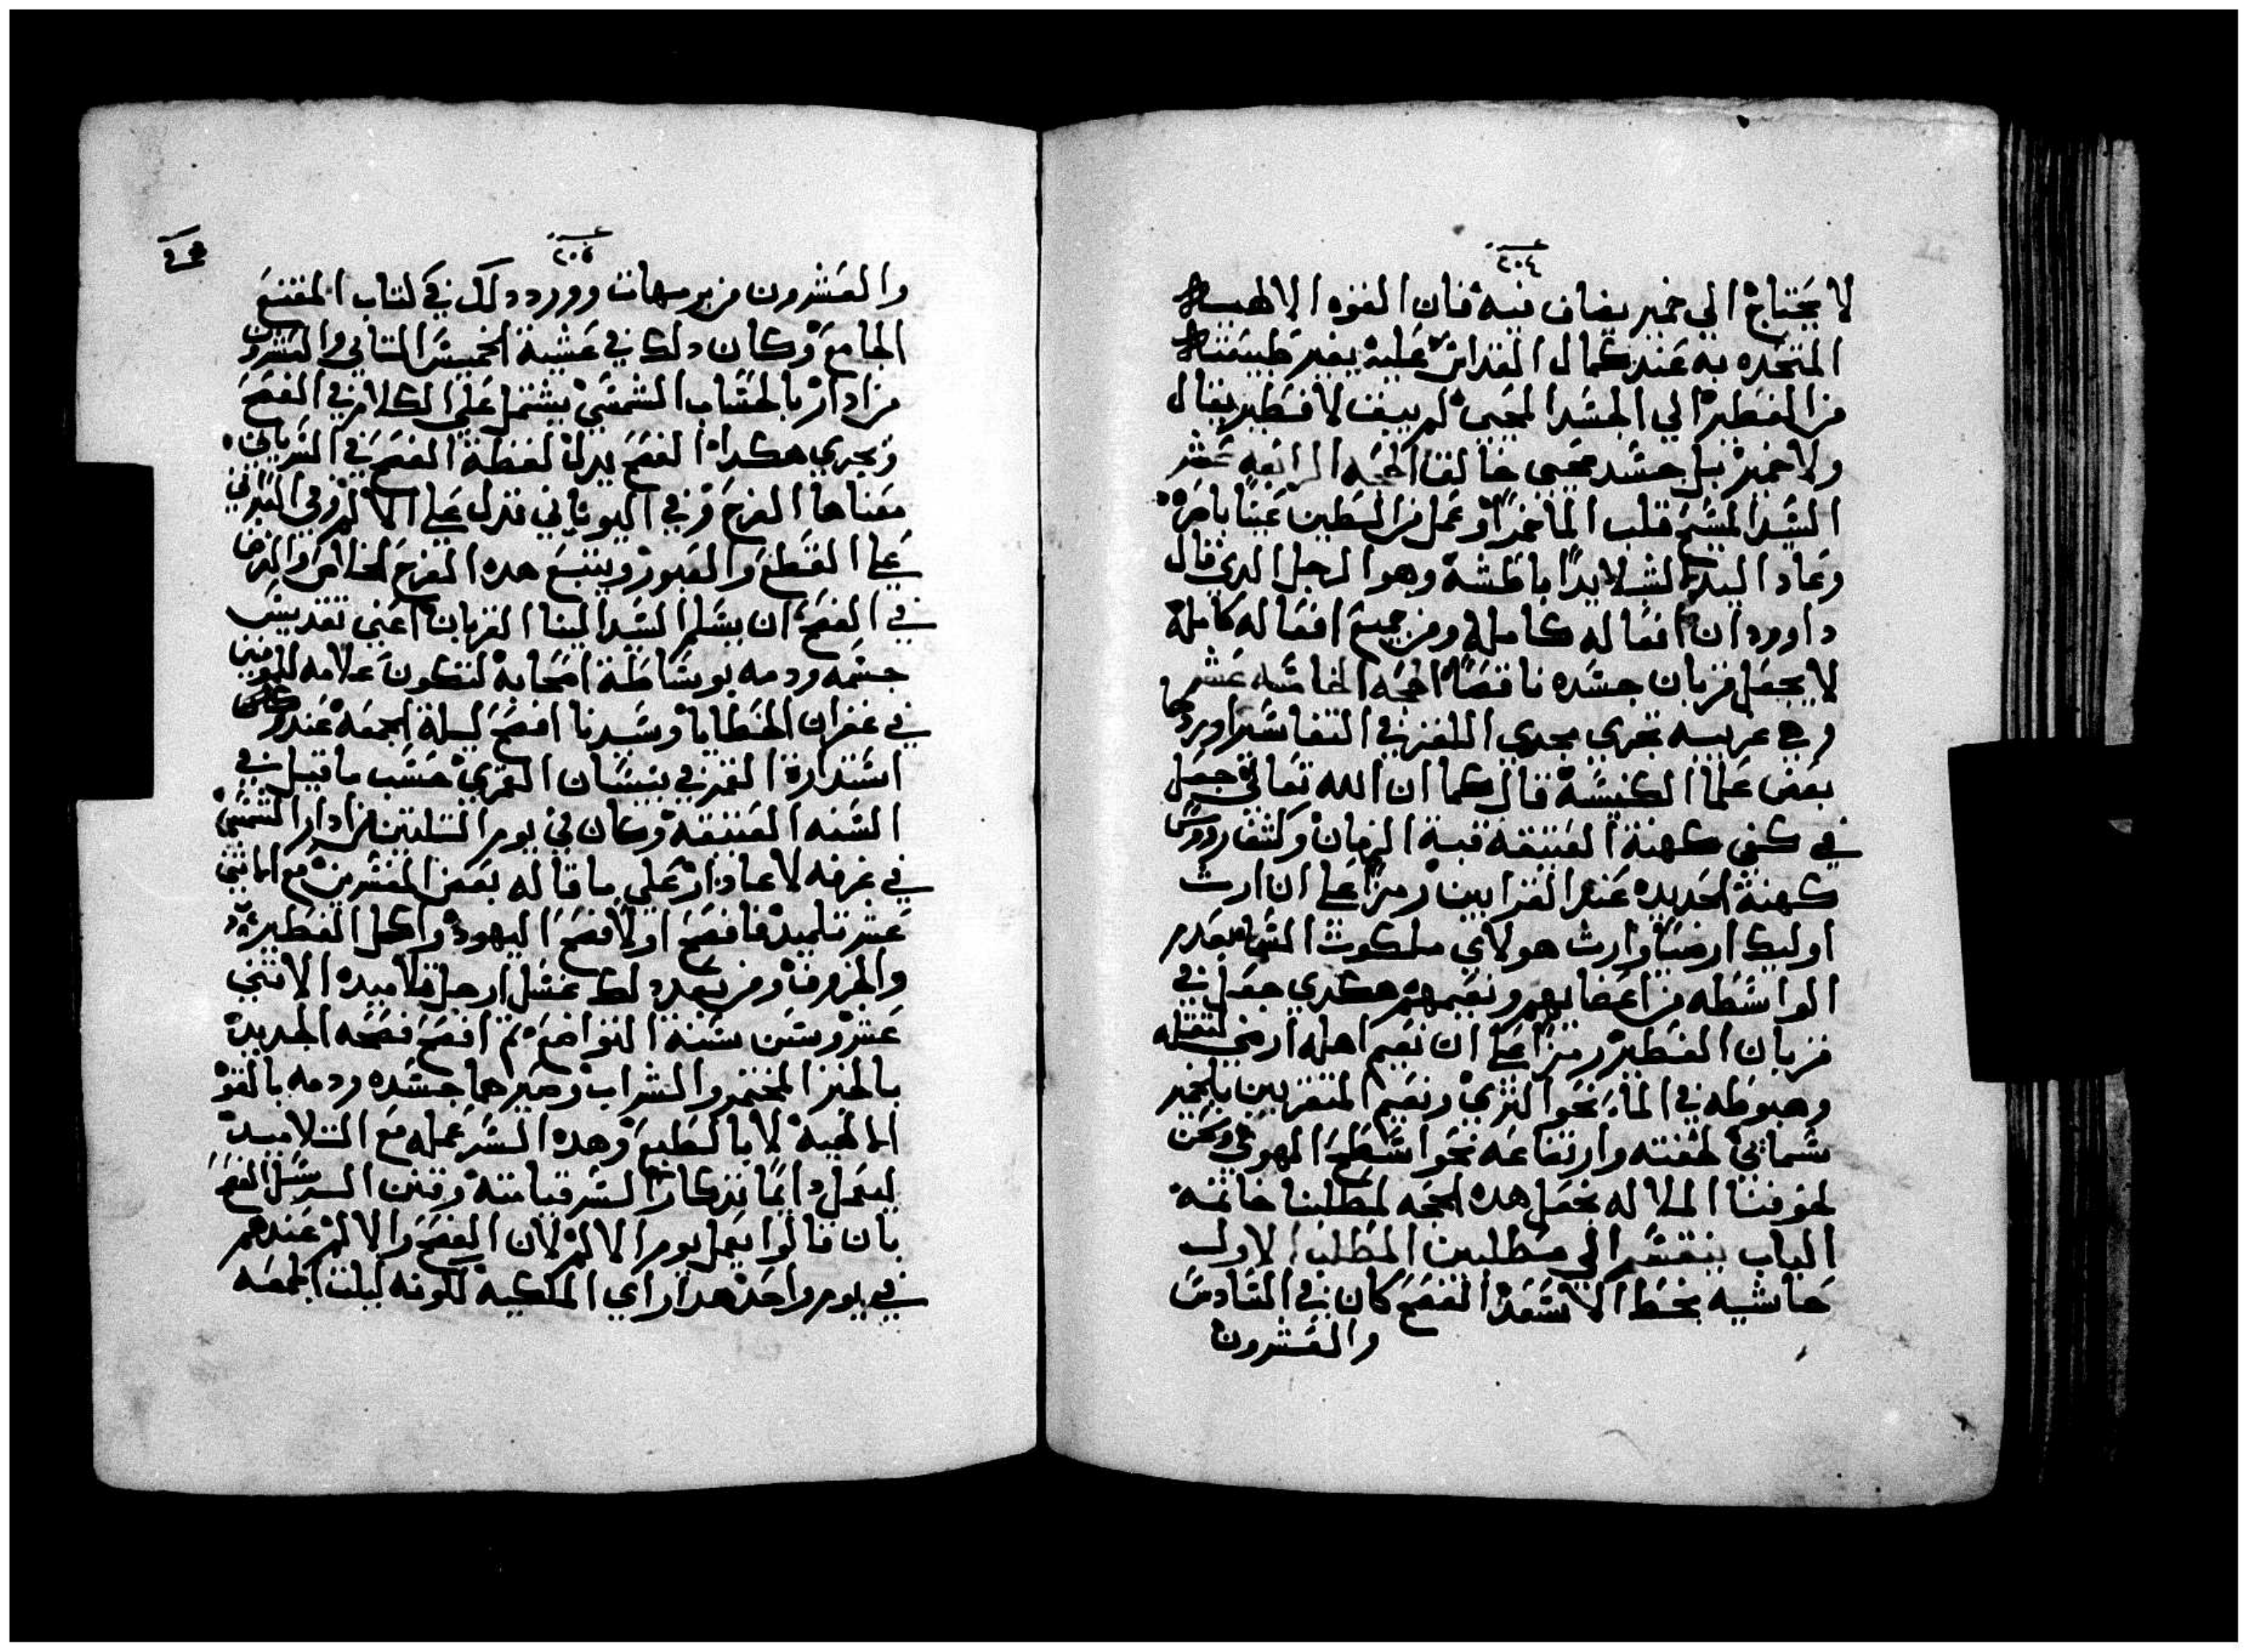 ٢٠٤
لا يحتاج الي خمير يضاف فيه فان القوه الالهيه
المتحده به عند كمال القداس عليه يغير طبيعته
من الفطير الي الجسد المحيي لم يبق لا فطير يقال
ولا خمير بل جسد محيي خالقا الحجه الرابعه عشر
السيد المسيح قلب الما خمرا وعمل من الطين عينا باصره
وعاد اليد الشلا يدا باطشه وهو الرجل الدي قال
داوود ان افعاله كامله ومن جميع افعاله كامله
لا يجعل قربان جسده ناقصا الحجه الخامسه عشر
وهي غريبه تجري مجري اللغز في التفاسير اوردها
بعض علما الكنيسه قال كما ان الله تعالي جعل
في كتفي كهنة العتيقه قبة الزمان وكشف رووس
كهنة الحديده عند القرابين رمزا علي ان ارث
اوليك ارضيا وارث هولاي ملكوت السما بعدم
الواسطه من اعضايهم ونعيمهم هكدي جعل في
قربان الفطير رمزا علي ان نعيم اهله ارضي لتقله
وهبوطه في الما نحو التري ونعيم المتقربين بالخمير
سمايي لخفته وارتفاعه نحو اسطح الهوي ونحن
لخوفنا الملاله نجعل هده الحجه لمطلبنا خاتمه
الباب ينقسم الي مطلبين المطلب الاول
حاشيه بخط الاسعد الفصح كان في السادس
والعشرون
٢٠٥
والعشرون من برمهات وورد دلك في كتاب المقنع
الجامع وكان دلك في عشية الخميس الثاني والعشرون
من ادار بالحساب الشمسي يشتمل علي الكلام في الفصح
وتجري هكدا الفصح يدل لفظة الفصح في السرياني
معناها الفرح وفي اليوناني تدل علي الالم وفي العبراني
علي القطع والعبور ويتبع هده الفرح الخاص والغرض
في الفصح ان يسلم السيد الينا القربان اعني تقديس
جسمه ودمه بوساطة اصحابه لتكون علامه للمومنين
في غفران الخطايا وسيدنا افصح ليلة الجمعه عند
استدارة القمر في نيسان القمري حسب ما قيل في
السنه العتيقه وكان في يوم التلتين من ادار الشمسي
في غرفه لاعادار علي ما قاله بعض المفسرين مع الاثني
عشر تلميد فافصح اولا فصح اليهود واكل الفطير
والخروف ومن بعد دلك غسل ارجل تلاميده الاثني
عشر وسن سنة التواضع تم افصح فصحه الجديد
بالخبز المختمر والشراب وصيرهما جسده ودمه بالقوه
الالهيه لا بالطبع وهده السر عمله مع التلاميد
ليعمل دايما تدكارا لسر قيامته وقتين السر سل الفصح
بان قالوا يعمل يوم الالم لان الفصح والالم عندهم
في يوم واحد هدا راي الملكيه لكونه ليلت الجمعه